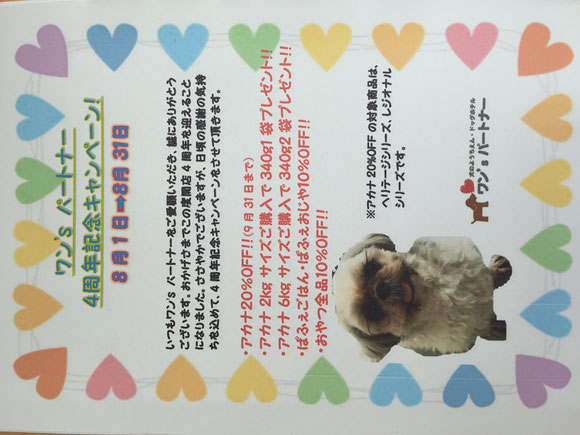 ワン's パートナー
4周年記念キャンペーン!
8月1日➡8月31日
いつもワン's パートナーをご愛顧いただき、誠にありがとう
ございます。おかげさまでこの度開店4周年を迎えること
になりました。ささやかでございますが、日頃の感謝の気持
ちを込めて、4周年記念キャンペーンをさせて頂きます。
・アカナ20%OFF!!(9月31日まで)
・アカナ 2kg サイズご購入で 340g1 袋プレゼント!!
・アカナ 6kg サイズご購入で 340g2 袋プレゼント!!
・ぱふぇごはん・ぱふぇおじや10%OFF!!
・おやつ全品10%OFF!!
※アカナ 20%OFF の対象商品は、
ヘリテージシリーズ、レジオナル
シリーズです。
犬のようちえん・ドッグホテル
ワン's パートナー